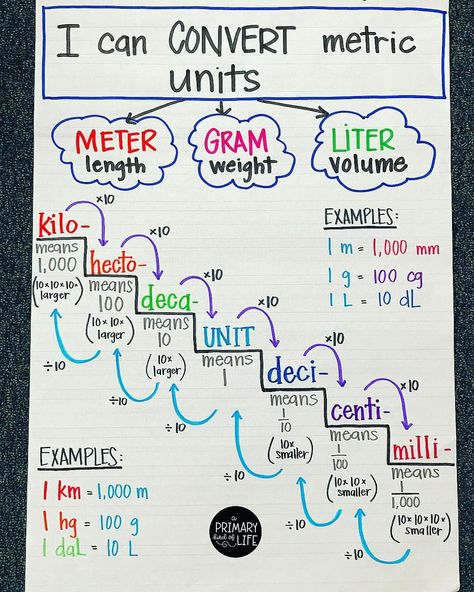 I can CONVERT metric
units
METER
length
GRAM
weight
LiTER
volume
kilo-
means
1,000
(10 x 10 x 10 x
larger)
x10
hecto-
means
100
(10 x 10 x
larger)
x10
deca-
means
10
(10 x
larger)
x10
UNIT
means
1
x10
deci-
means
1
10
(10 x
smaller)
x10
centi-
means
1
100
(10 x 10 x
smaller)
x10
milli-
means
1
1,000
(10 x 10 x 10 x
smaller)
÷10
÷10
÷10
÷10
÷10
÷10
EXAMPLES:
1 m = 1,000 mm
1 g = 100 cg
1 L = 10 dL
EXAMPLES:
1 km = 1,000 m
1 hg = 100 g
1 daL = 10 L
a
PRIMARY
kind of
LIFE